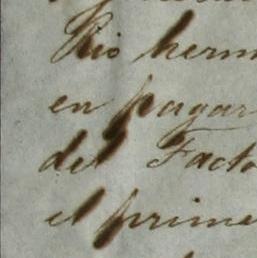 Rio herm
en pagar
del Facto
el prime